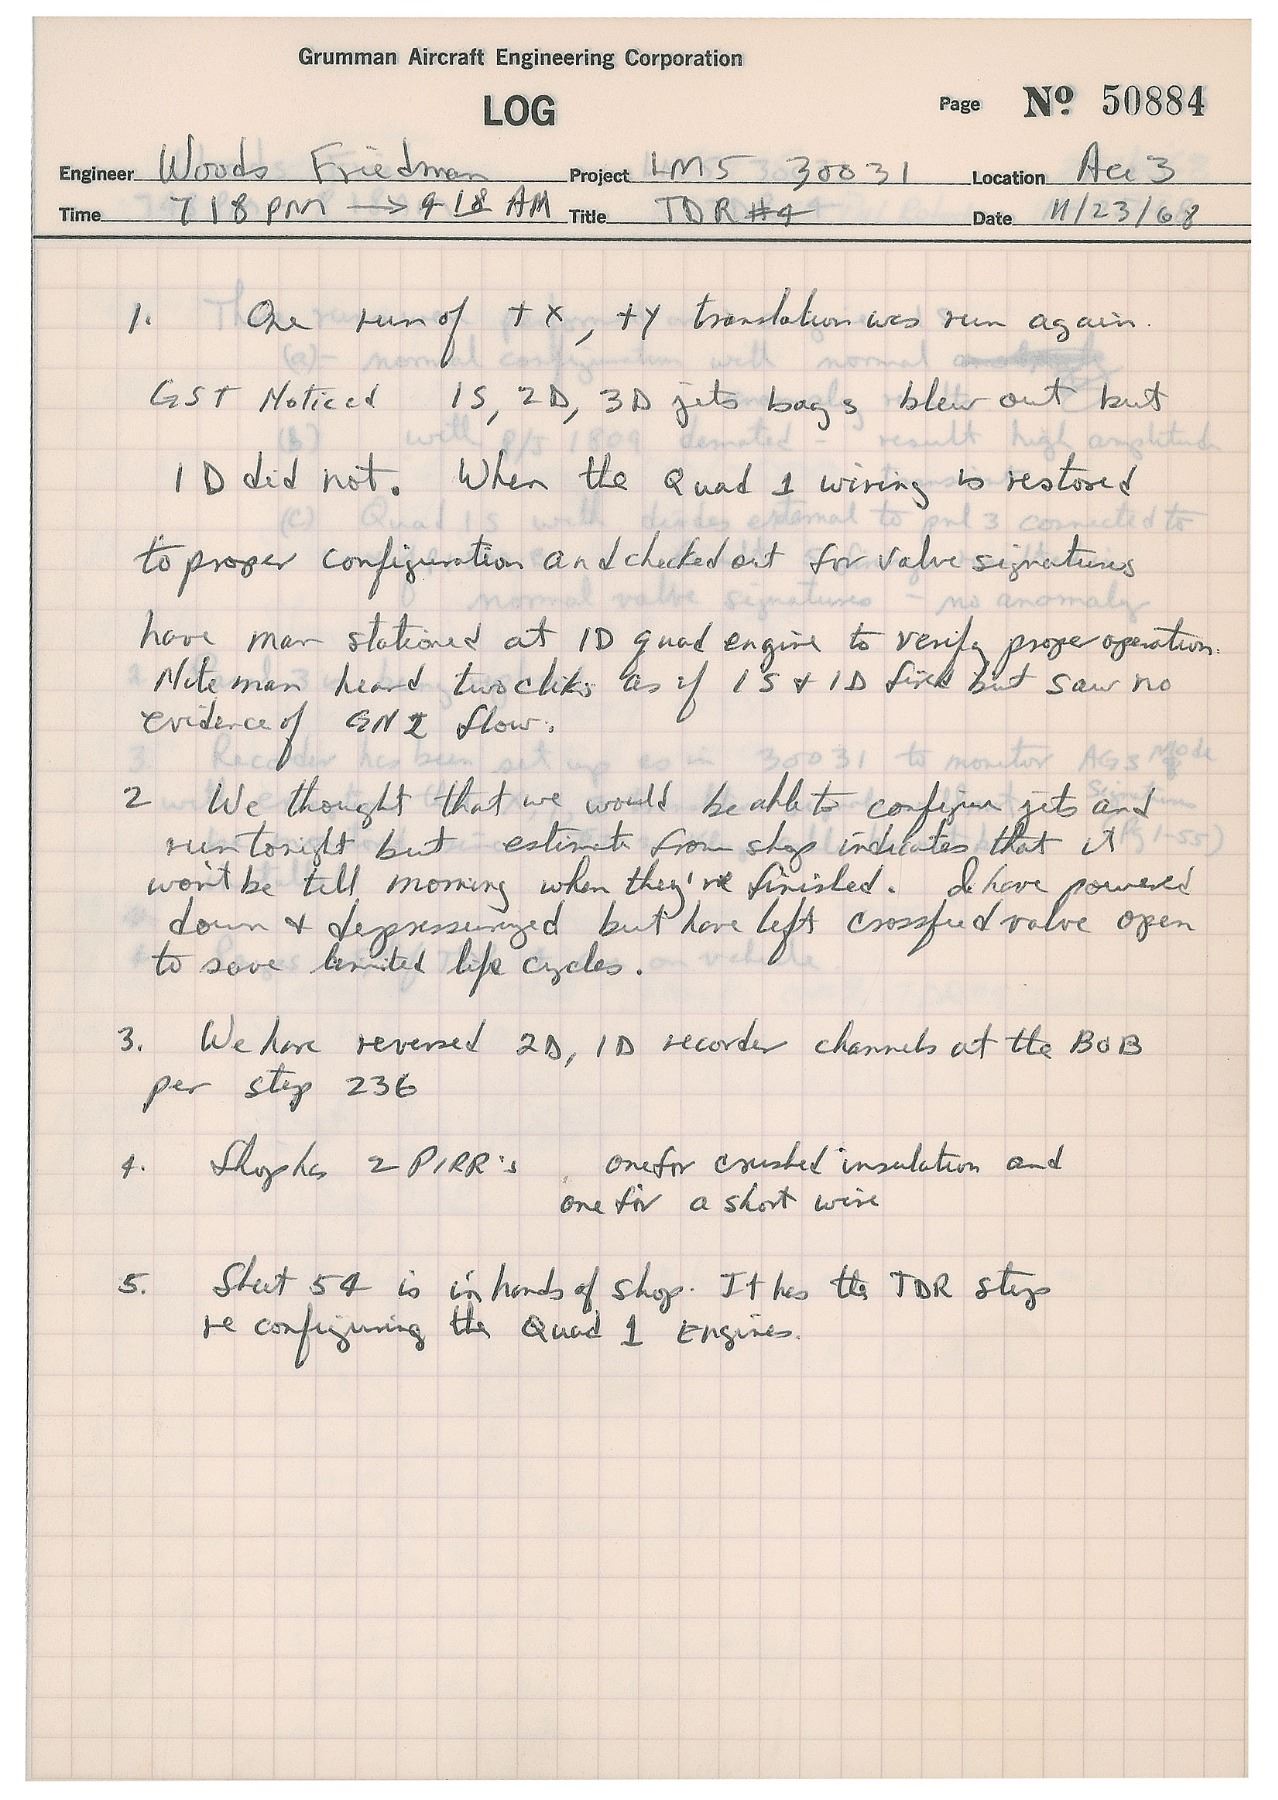 Grumman Aircraft Engineering Corporation
LOG
Page Nº 50884
Engineer Woods Friedman Project LM5 30031 Location Acc 3
Time 718 PM → 418 AM Title TDR #4 Date 11/23/68
1. One run of +X, +Y translation was run again.
GST Noticed 1S, 2D, 3D jets bags blew out but
1D did not. When the Quad 1 wiring is restored
to proper configuration and checked out for valve signatures
have man stationed at 1D quad engine to verify proper operation.
Note man heard two cliks as if 1S & 1D fired but saw no
evidence of GN2 flow.
2 We thought that we would be able to configure jets and
run tonight but estimate from shop indicates that it
won't be till morning when they're finished. I have powered
down & depressurized but have left crossfeed valve open
to save limited life cycles.
3. We have reversed 2D, 1D recorder channels at the BOB
per step 236
4. Shop has 2 PIRR's one for crushed insulation and
one for a short wire
5. Sheet 54 is in hands of shop. It has the TDR step
re configuring the Quad 1 Engines.